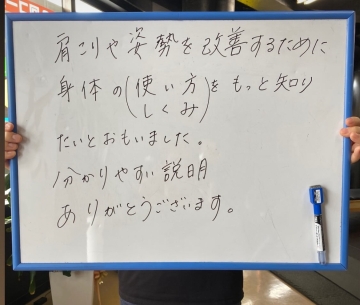 肩こりや姿勢を改善するために
身体の(使い方 しくみ)をもっと知り
たいとおもいました。
分かりやすい説明
ありがとうございます。